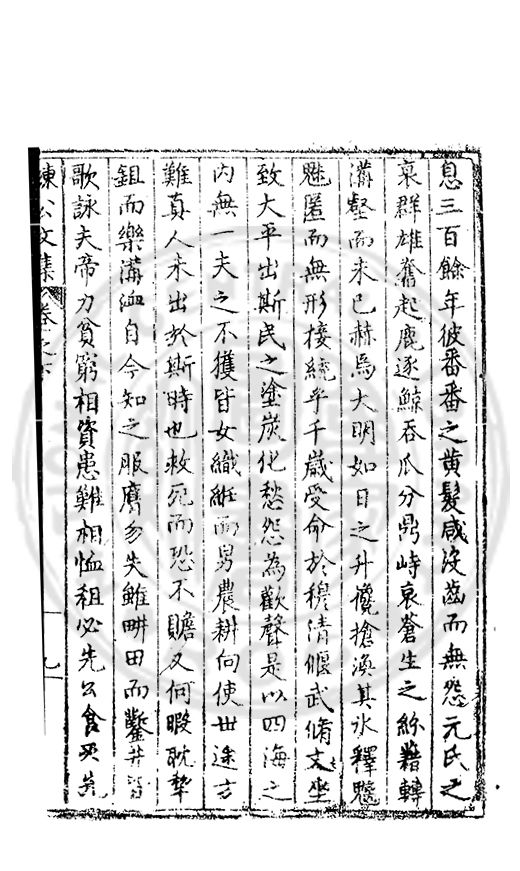 息三百餘年彼番番之黃髮咸沒齒而無怨元氏之
哀群雄奮起鹿逐鯨吞瓜分鼎峙哀蒼生之紛藉轉
溝壑而未已赫焉大明如日之升欃搶渙其氷釋魑
魅匿而無形接統乎千歲受命於穆清偃武脩文坐
致大平出斯民之塗炭化愁怨為歡聲是以四海之
內無一夫之不獲皆女織絍而男農耕向使世途方
難真人未出於斯時也救死而恐不贍又何暇耽犂
鉏而樂溝洫自今知之服膺勿失雖畊田而鑿井皆
歌詠夫帝力貧窮相資患難相恤租必先公食
練公文集 卷之下
九